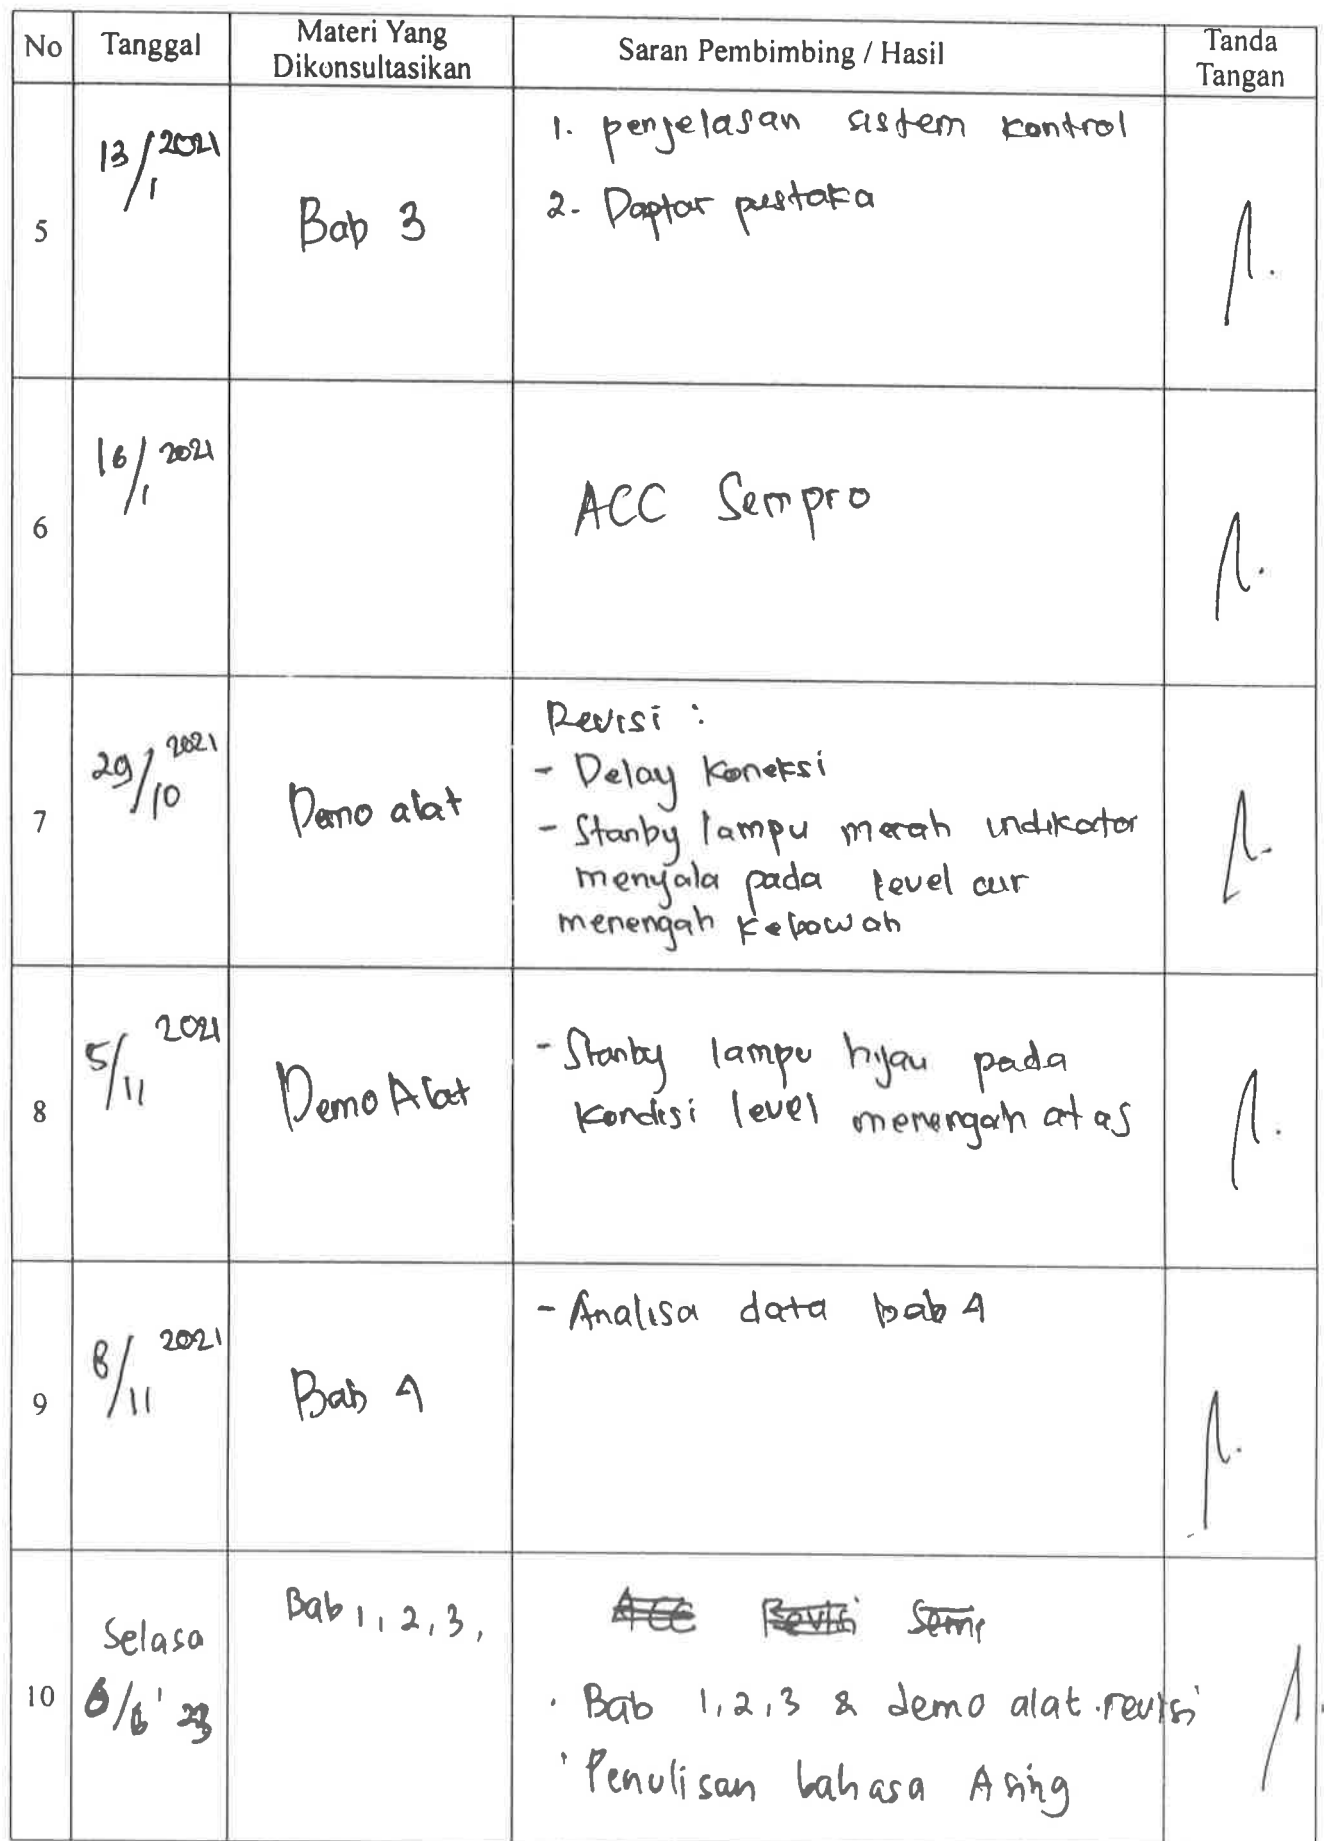 No Tanggal Materi Yang Dikonsultasikan Saran Pembimbing / Hasil Tanda Tangan
5 13/1 2021 Bab 3
1. penjelasan sistem kontrol
2. Daptar pustaka
6 16/1 2021 ACC Sempro
7 29/10 2021 Demo alat
Revisi :
- Delay koneksi
- Stanby lampu merah indikator
menyala pada level air
menengah kebawah
8 5/11 2021 Demo Alat
- Stanby lampu hijau pada
kondisi level menengah atas
9 8/11 2021 Bab 4
- Analisa data bab 4
10 Selasa 6/6 '23 Bab 1, 2, 3,
ACC Revisi Sem
. Bab 1, 2, 3 & demo alat. revisi
' Penulisan bahasa Asing